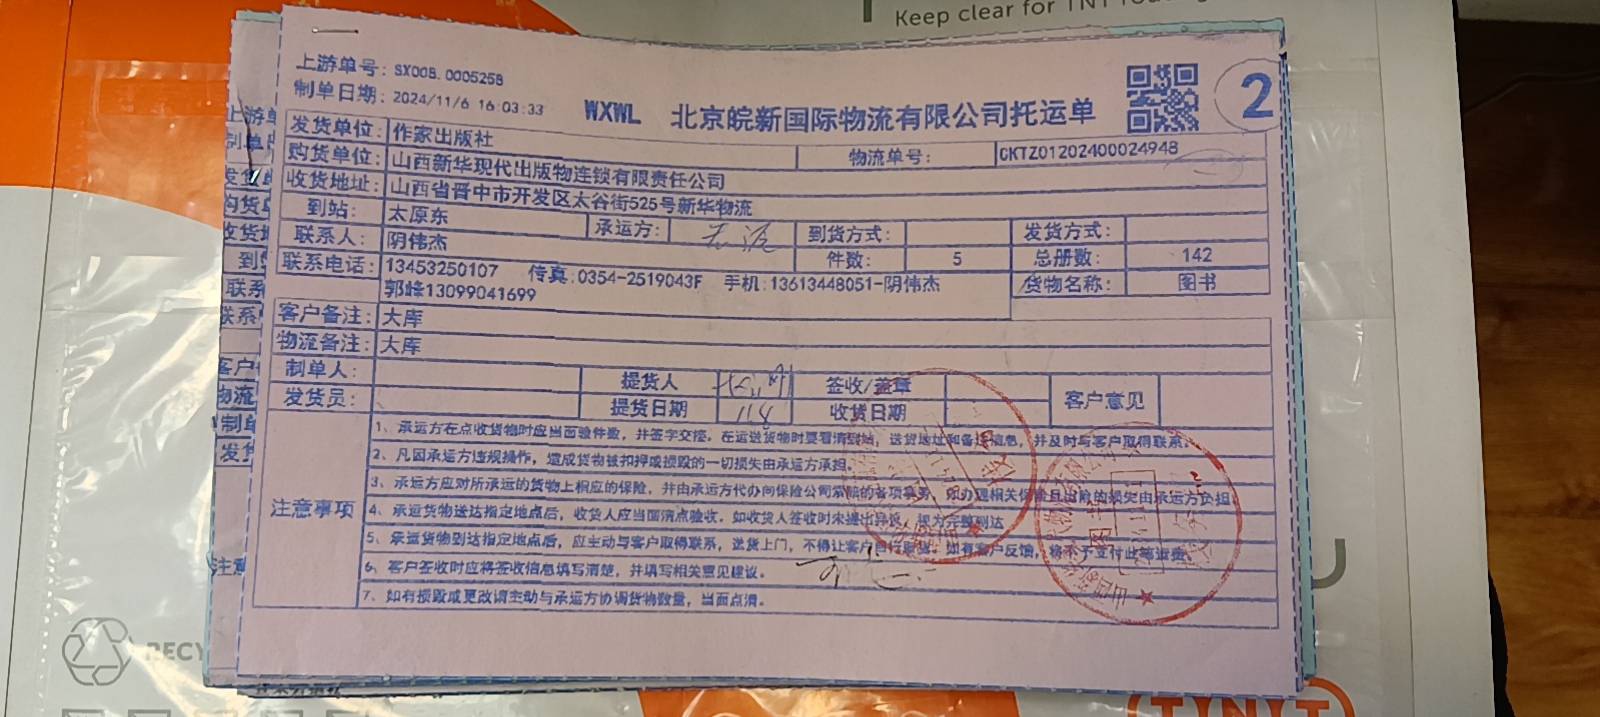 Keep clear for TNT
上游单号: SX008.0005258
制单日期: 2024/11/6 16:03:33
WXWL 北京皖新国际物流有限公司托运单
2
发货单位: 作家出版社 物流单号: CKTZ01202400024948
购货单位: 山西新华现代出版物连锁有限责任公司
收货地址: 山西省晋中市开发区太谷街525号新华物流
到站: 太原东 承运方: 到货方式: 发货方式:
联系人: 阴伟杰 件数: 5 总册数: 142
联系电话: 13453250107 传真:0354-2519043F 手机:13613448051-阴伟杰 货物名称: 图书
郭峰13099041699
客户备注: 大库
物流备注: 大库
制单人: 提货人 签收/盖章 客户意见
发货员: 提货日期 11.8 收货日期
注意事项
1、承运方在点收货物时应当面验件数，并签字交接。在运送货物时要看清到站，送货地址和备注信息，并及时与客户取得联系。
2、凡因承运方违规操作，造成货物被扣押或损毁的一切损失由承运方承担。
3、承运方应对所承运的货物上相应的保险，并由承运方代办向保险公司索赔的各项事务，如办理相关保险且出险的损失由承运方负担
4、承运货物送达指定地点后，收货人应当面清点验收，如收货人签收时未提出异议，视为完整到达
5、承运货物到达指定地点后，应主动与客户取得联系，送货上门，不得让客户自行提货。如有客户反馈，将不予支付此笔运费
6、客户签收时应将签收信息填写清楚，并填写相关意见建议。
7、如有损毁或更改请主动与承运方协调货物数量，当面点清。
RECY
TNT